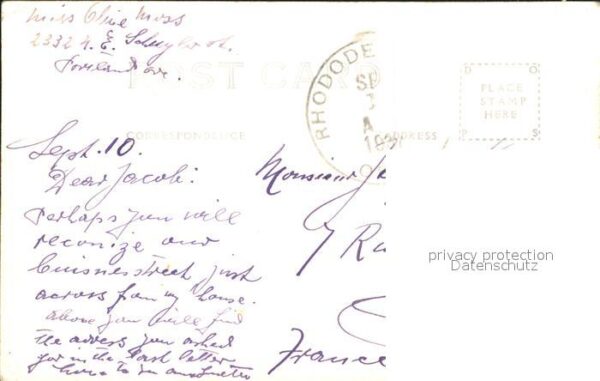 Miss Oline Moss
2332 N. E. Schuyler
Portland Ore.
POST CARD
RHODODE
SE
1
A
193
PLACE
STAMP
HERE
CORRESPONDENCE
ADDRESS
Sept. 10.
Dear Jacob:
Perhaps you will
reconize our
buisnesstreet just
across from my house.
above you will find
the adress you asked
for in the last letter
Monsieur Ja
7 Ru
France
privacy protection
Datenschutz